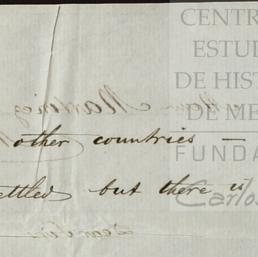 CENTR
ESTU
DE HIST
DE ME
FUNDA
Carlos
other countries —
ettled but there is